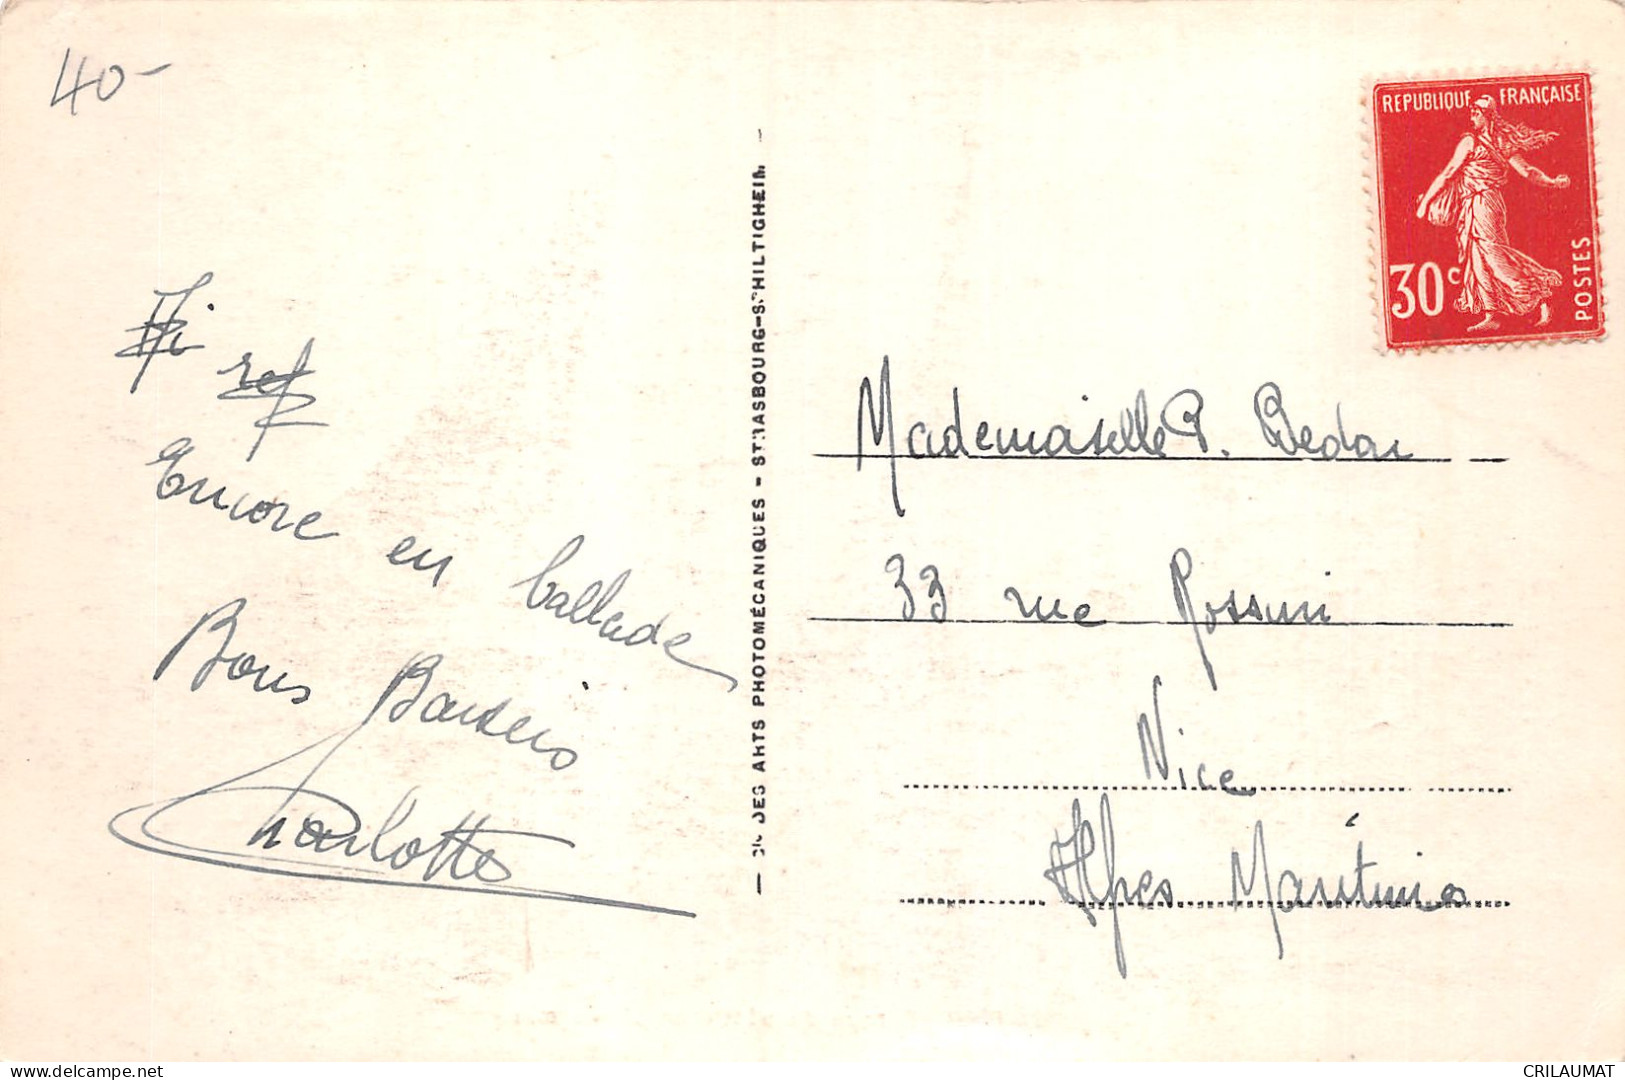 40-
REPUBLIQUE FRANÇAISE
30c
POSTES
Encore en ballade
Bons Baisers
Charlotte
DES ARTS PHOTOMÉCANIQUES - STRASBOURG-SCHILTIGHEIM -
Mademoiselle P. Bedar
33 rue Rossini
Nice
Alpes Maritimes
delcampe.net
CRILAUMAT